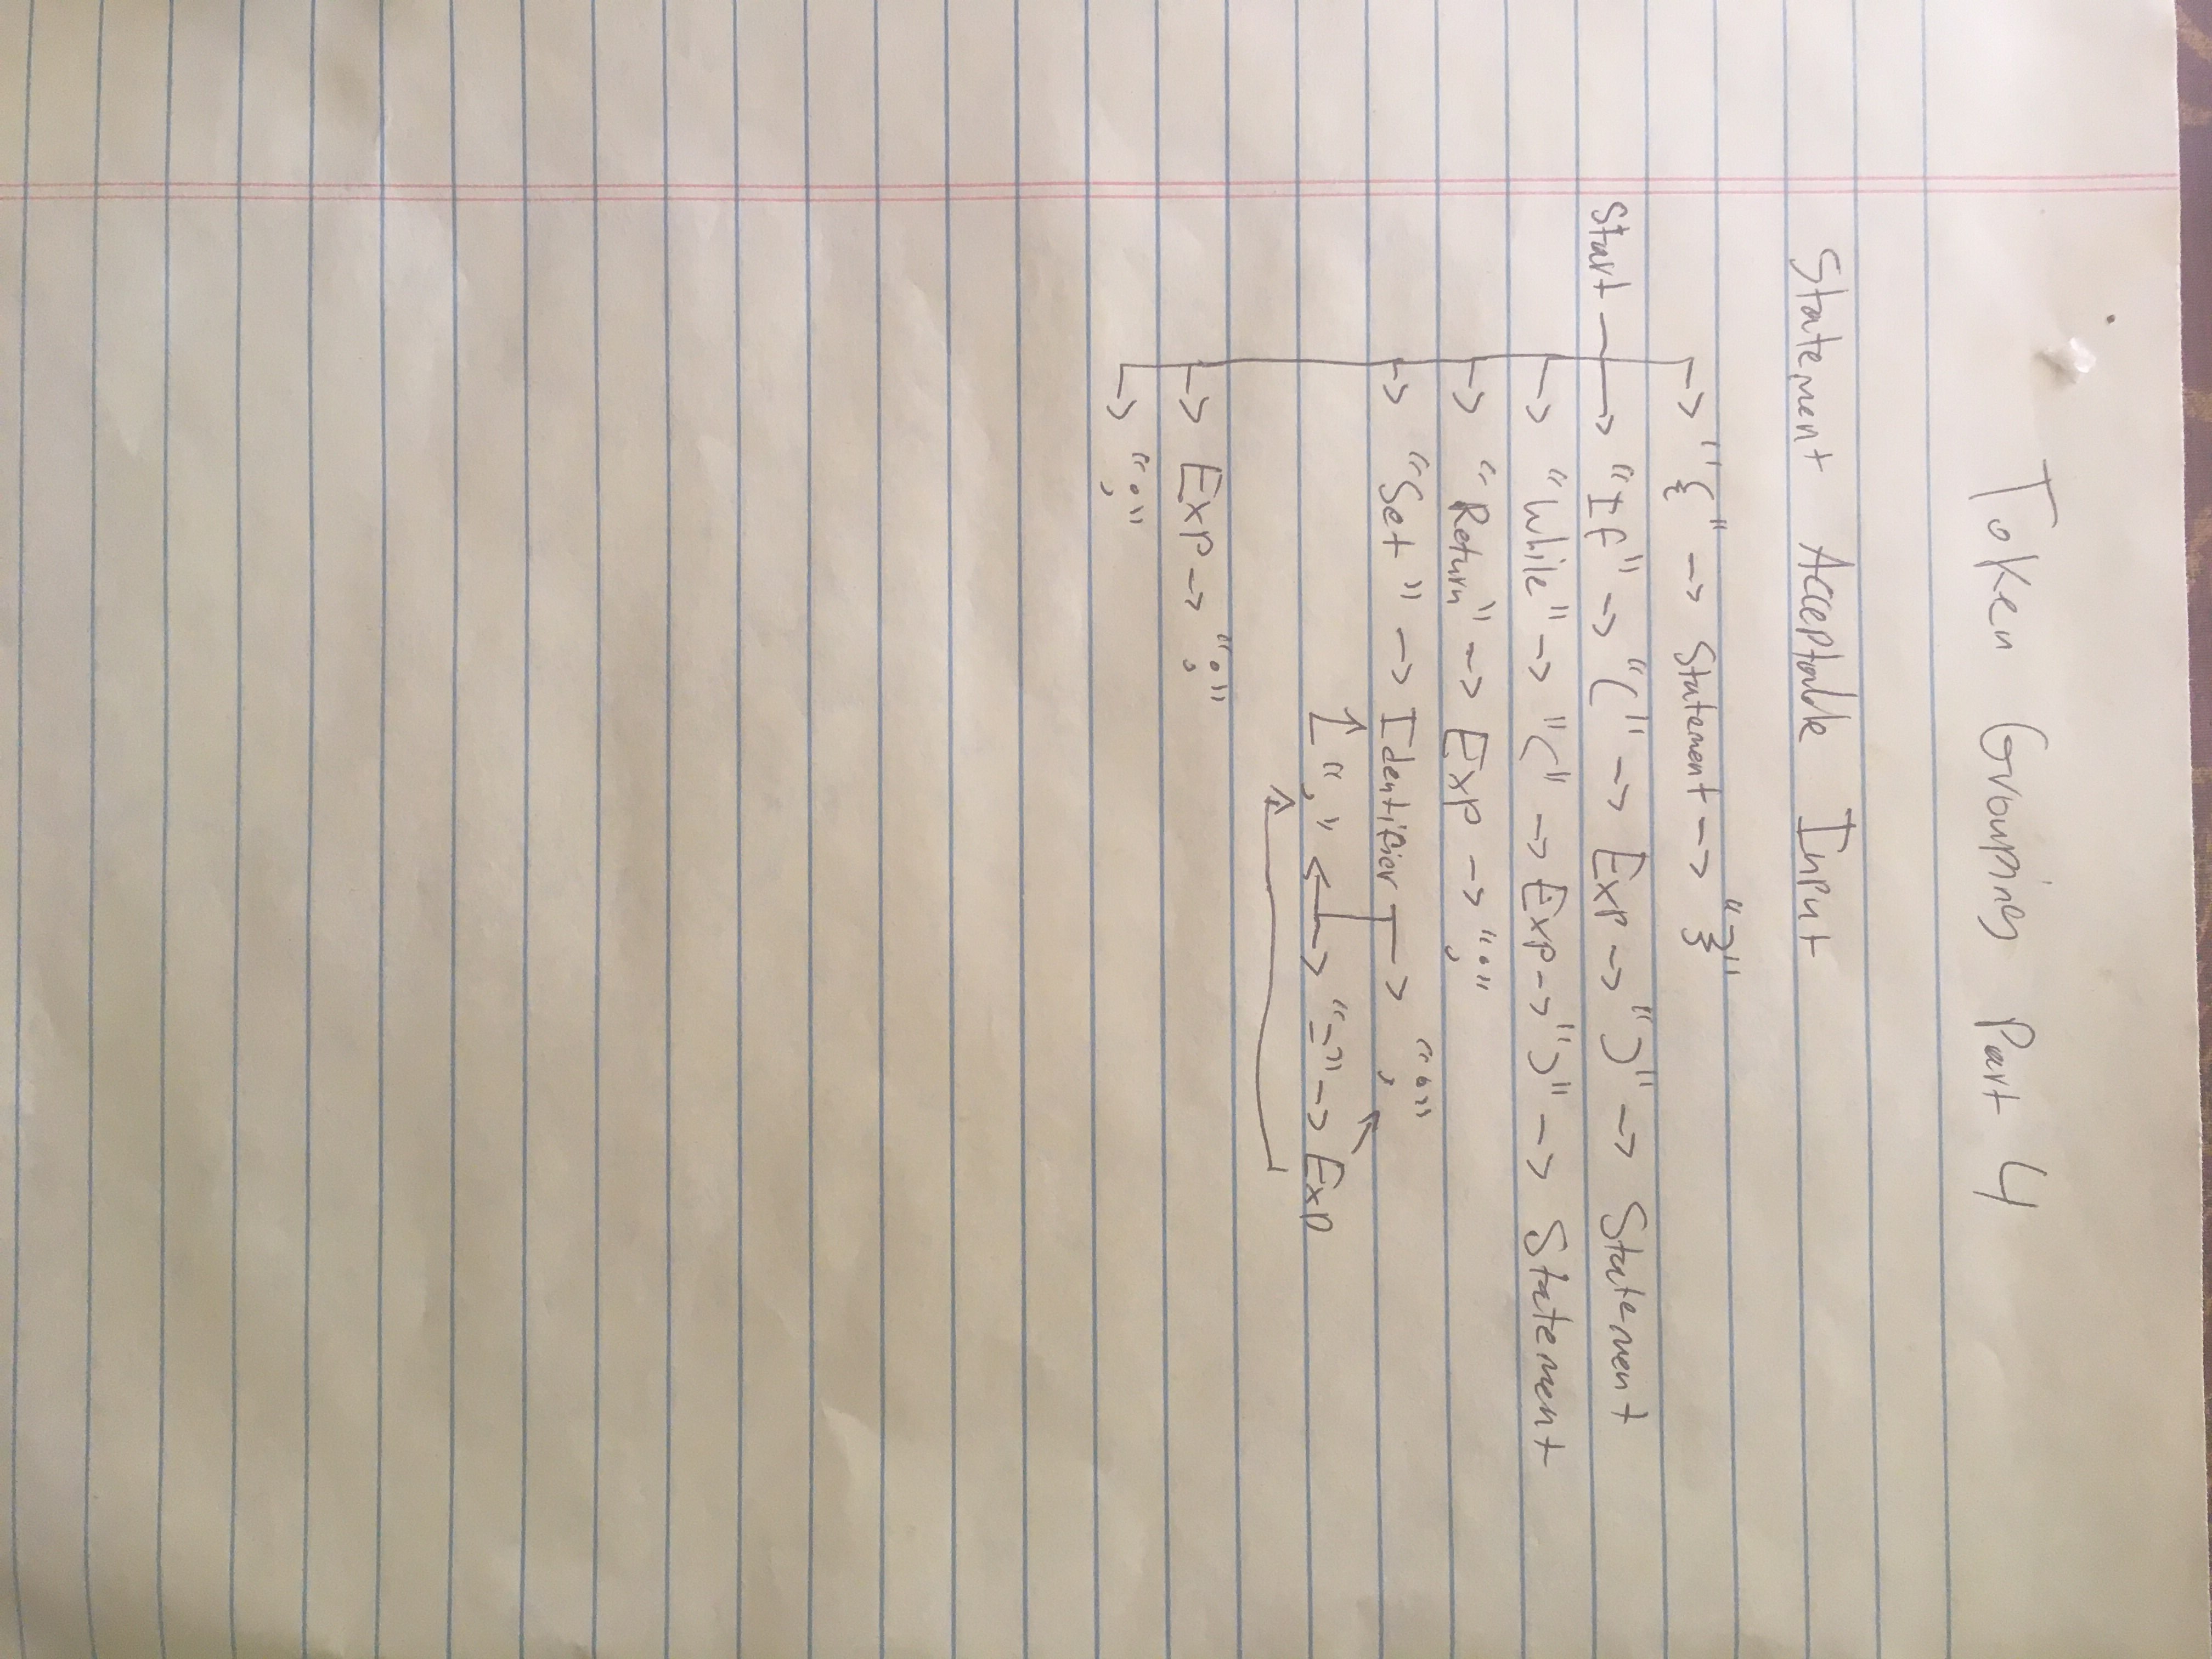 Token Grouping Part 4
Statement Acceptable Input
"{" -> Statement -> "}"
Start -> "If" -> "(" -> Exp -> ")" -> Statement
-> "While" -> "(" -> Exp -> ")" -> Statement
-> "Return" -> Exp -> ";"
-> "Set" -> Identifier -> ";"
"," <- -> "=" -> Exp
-> Exp -> ";"
-> ";"